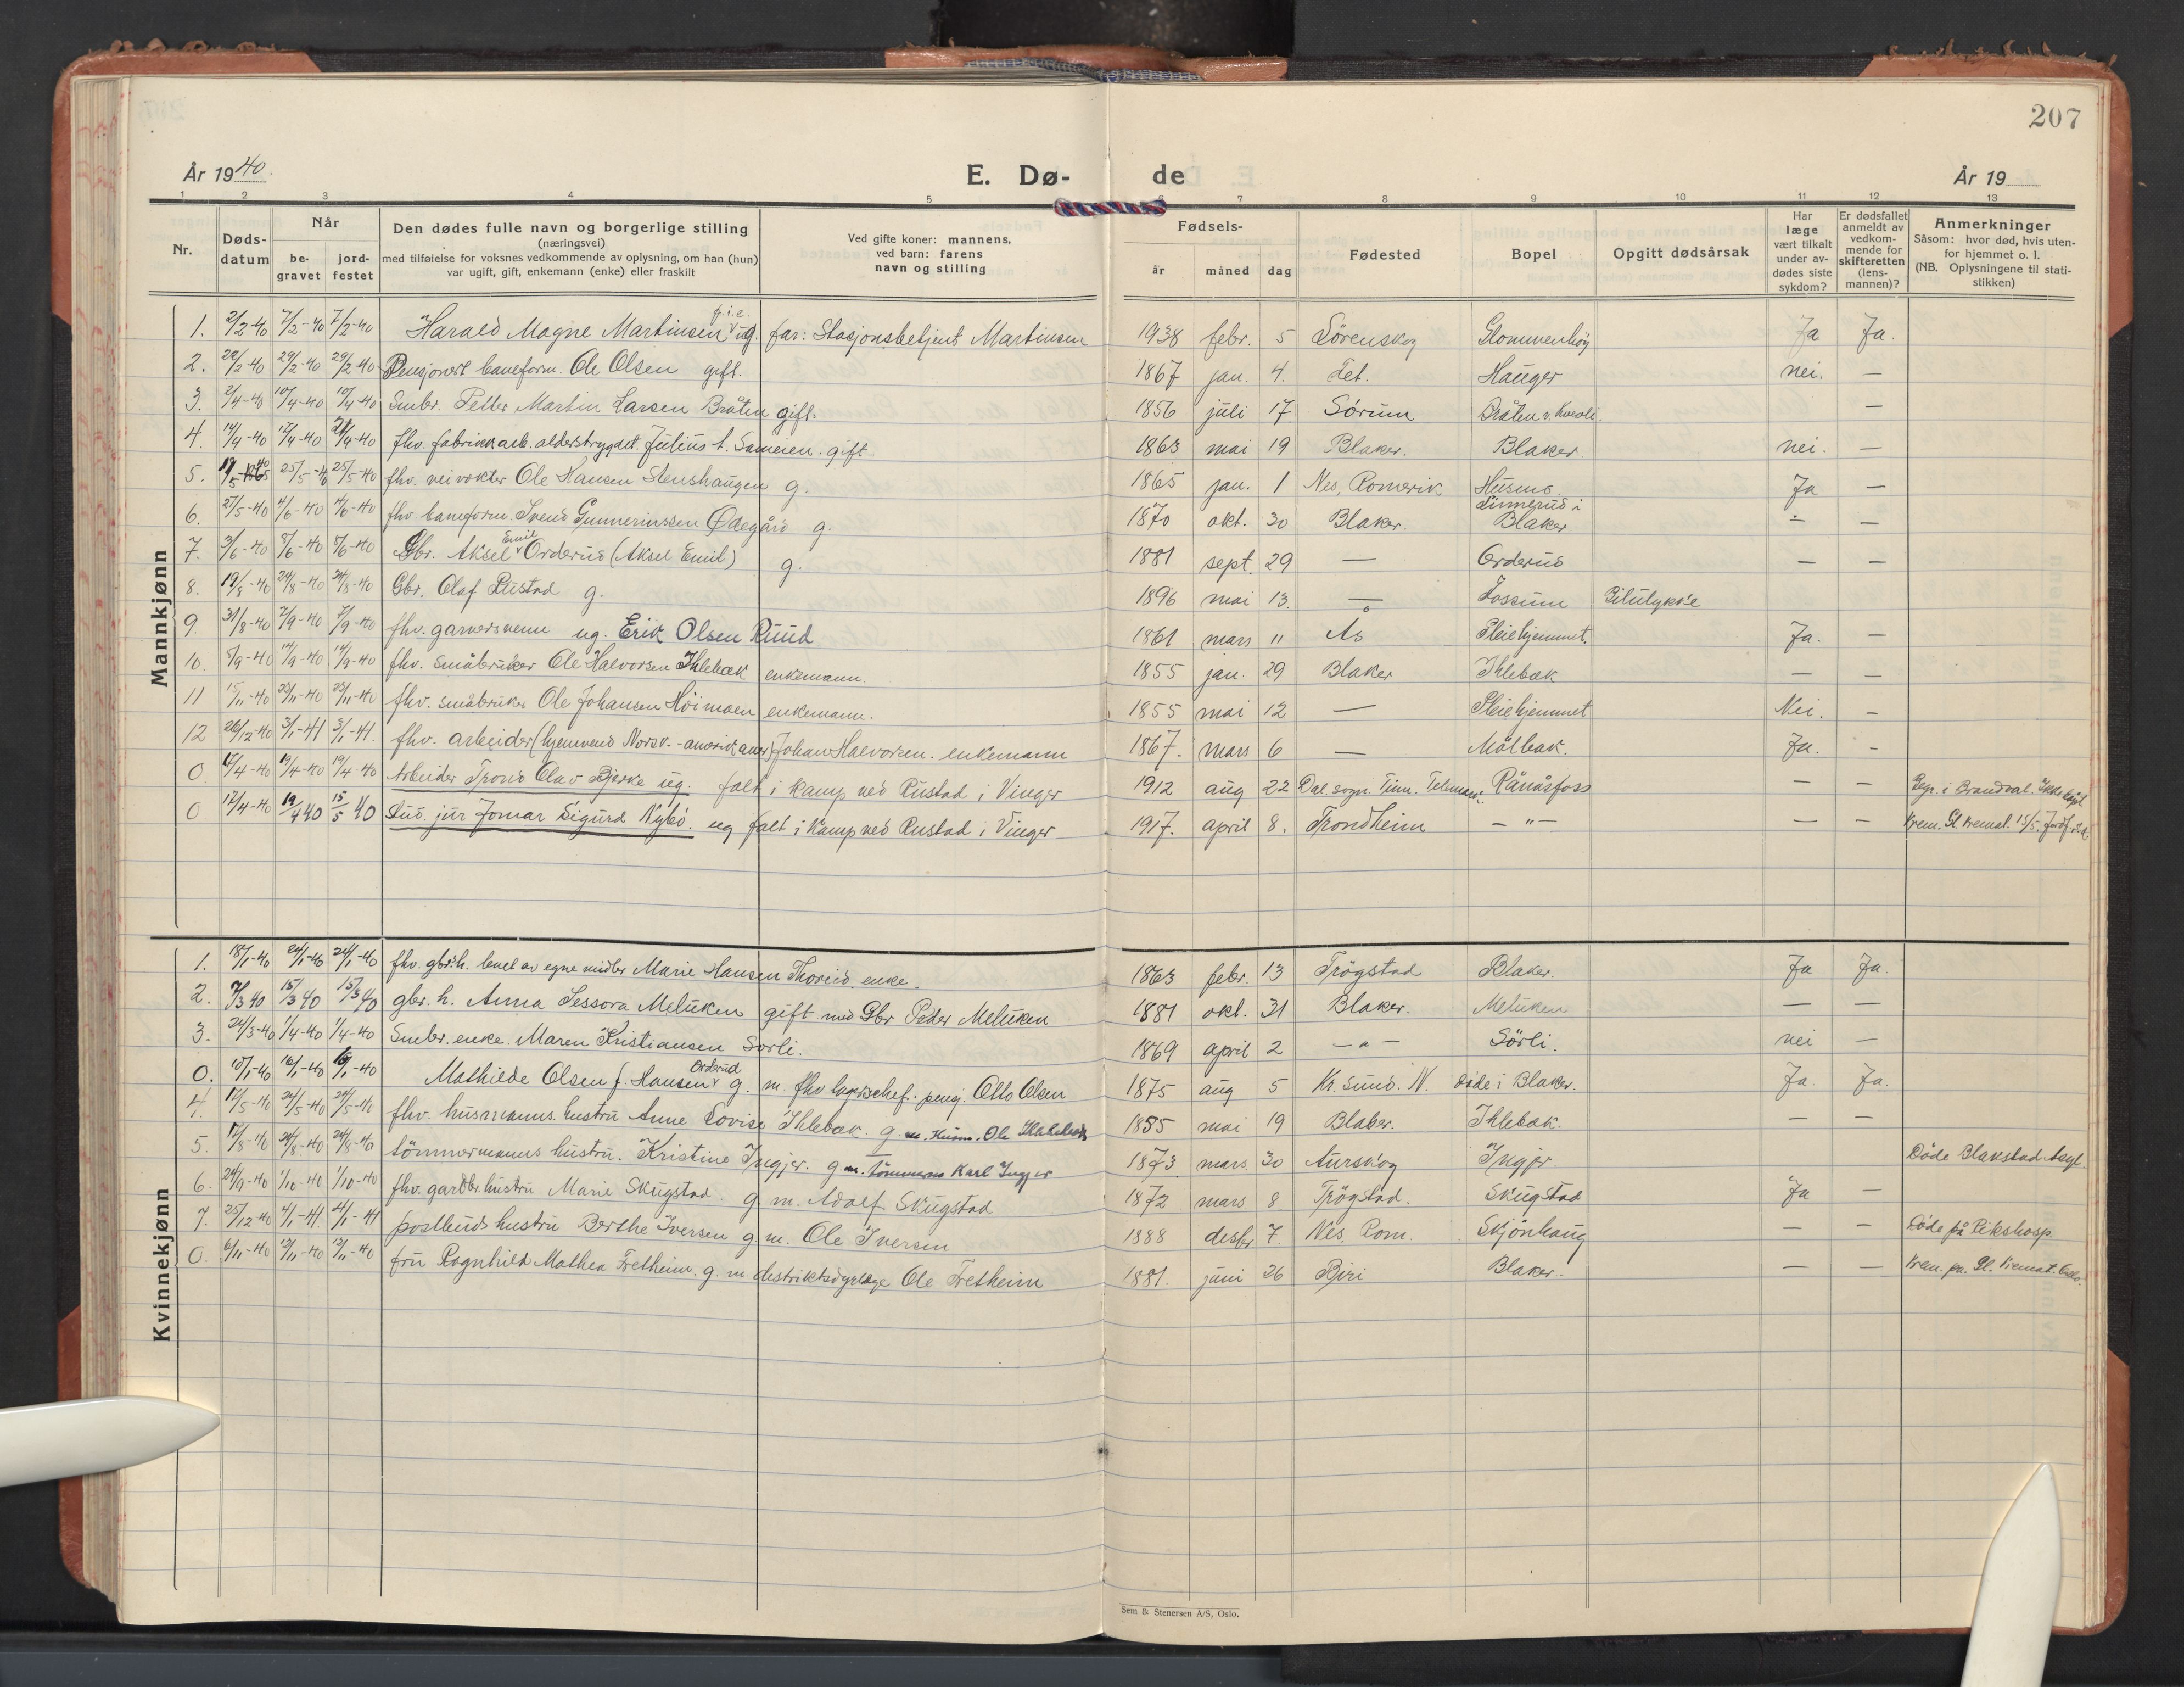 207
År 1940.
E. Dø-
de
År 19
1 2 3 4 5 6 7 8 9 10 11 12 13
Nr.
Døds-
datum
Når
be-
gravet
jord-
festet
Den dødes fulle navn og borgerlige stilling
(næringsvei)
med tilføielse for voksnes vedkommende av oplysning, om han (hun)
var ugift, gift, enkemann (enke) eller fraskilt
Ved gifte koner: mannens,
ved barn: farens
navn og stilling
Fødsels-
år
måned
dag
Fødested
Bopel
Opgitt dødsårsak
Har
læge
vært tilkalt
under av-
dødes siste
sykdom?
Er dødsfallet
anmeldt av
vedkom-
mende for
skifteretten
(lens-
mannen)?
Anmerkninger
Såsom: hvor død, hvis uten-
for hjemmet o. l.
(NB. Oplysningene til stati-
stikken)
Mannkjønn
1. 2/2-40 7/2-40 7/2-40 Harald Magne Martinsen f.i.e. ug. far: Stasjonsbetjent Martinsen 1938 febr. 5 Lörenskog Glommenhög Ja Ja.
2. 22/2-40 29/2-40 29/2-40 Pensjonert baneform. Ole Olsen gift. 1867 jan. 4. Fet. Hauger nei. —
3. 2/4-40 10/4-40 10/4-40 Smbr. Petter Martin Larsen Bråten gift. 1856 juli 17 Sörum Bråten v. Kvevli. —
4. 14/4-40 17/4-40 27/4-40 fhv. fabrikkarb. alderstrygdet. Julius A. Sameien. gift. 1863 mai 19 Blaker. Blaker. nei. —
5. 19/5-40 25/5-40 25/5-40 fhv. veivokter Ole Hansen Stenshaugen g. 1865 jan. 1 Nes, Romerik Husmo. Ja —
6. 27/5-40 4/6-40 4/6-40 fhv. baneform. Svend Gunneriussen Ødegård g. 1870 okt. 30 Blaker. Linnerud i Blaker — —
7. 3/6-40 8/6-40 8/6-40 Gbr. Aksel Emil Orderud (Aksel Emil) g. 1881 sept. 29 — Orderud — —
8. 19/8-40 24/8-40 24/8-40 Gbr. Olaf Rustad g. 1896 mai 13. — Fossum Bilulykke
9. 31/8-40 7/9-40 7/9-40 fhv. garversvenn ug. Erik Olsen Ruud 1861 mars 11 Ås Pleiehjemmet. Ja. —
10. 8/9-40 14/9-40 14/9-40 fhv. småbruker Ole Halvorsen Ihlebæk enkemann. 1855 jan. 29 Blaker Ihlebæk — —
11 15/11-40 23/11-40 23/11-40 fhv. småbruker Ole Johansen Höimoen enkemann. 1855 mai 12 — Pleiehjemmet Nei. —
12 26/12-40 3/1-41 3/1-41. fhv. arbeider (hjemvend Norsk-amerikaner) Johan Halvorsen. enkemann 1867. mars 6 — Målbak. Ja. -
0. 17/4-40 19/4-40 19/4-40 Arbeider Trond Olav Bjerke ug. falt i kamp ved Rustad i Vinger 1912 aug 22 Dal sogn. Tinn. Telemark. Rånåsfoss — — Begr. i Brandval.
0 17/4-40 19/4 40 15/5 40 Stud. jur Jomar Sigurd Nybö. ug falt i kamp ved Rustad i Vinger 1917. april 8. Trondheim —"— — — Krem. Gl. Kremat. 15/5.
Kvinnekjønn
1. 18/1-40 24/1-40 24/1-40 fhv. gbr.h. levet av egne midler Marie Hansen Thorud. enke. 1863 febr. 13 Trögstad Blaker. Ja Ja.
2. 7/3 40 15/3 40 15/3 40 gbr. h. Anna Sessora Meluken gift med Gbr Peder Meluken 1881 okt. 31 Blaker. Meluken — —
3. 24/3-40 1/4-40 1/4-40 Smbr. enke. Maren Kristiansen Sörli. 1869 april 2 —"— Sörli. nei —
0. 10/1-40 16/1-40 16/1-40 Mathilde Olsen f. Hansen Orderud g. m. fhv lagerschef. pensj. Otto Olsen 1875 aug 5 Kr. Sund. N. døde i Blaker. Ja. Ja.
4. 17/5-40 24/5-40 24/5-40 fhv. husmanns. hustru Anne Lovise Ihlebæk. g m. Husm. Ole 1855 mai 19 Blaker. Ihlebæk. — —
5. 17/8-40 24/8-40 24/8-40 tömmermanns hustru. Kristine Ingjer. g m. tömmerm Karl Ingjer 1873 mars 30 Aurskog Ingjer. Döde Blakstad Asyl.
6. 24/9-40 1/10-40 1/10-40 fhv. gardbr. hustru Marie Skugstad. g m. Adolf Skugstad 1872 mars 8 Trögstad. Skugstad Ja —
7. 25/12-40 4/1-41. 4/1-41 postbuds hustru Berthe Iversen g. m. Ole Iversen 1888 desbr 7. Nes, Rom. Skjönhaug — — Döde på Rikshosp.
0. 6/11-40 12/11-40 12/11-40 fru Ragnhild Mathea Fretheim. g. m distriktsdyrlege Ole Fretheim 1881. juni 26 Biri Blaker. — — Krem. på Gl. Kremat. Oslo.
Sem & Stenersen A/S, Oslo.